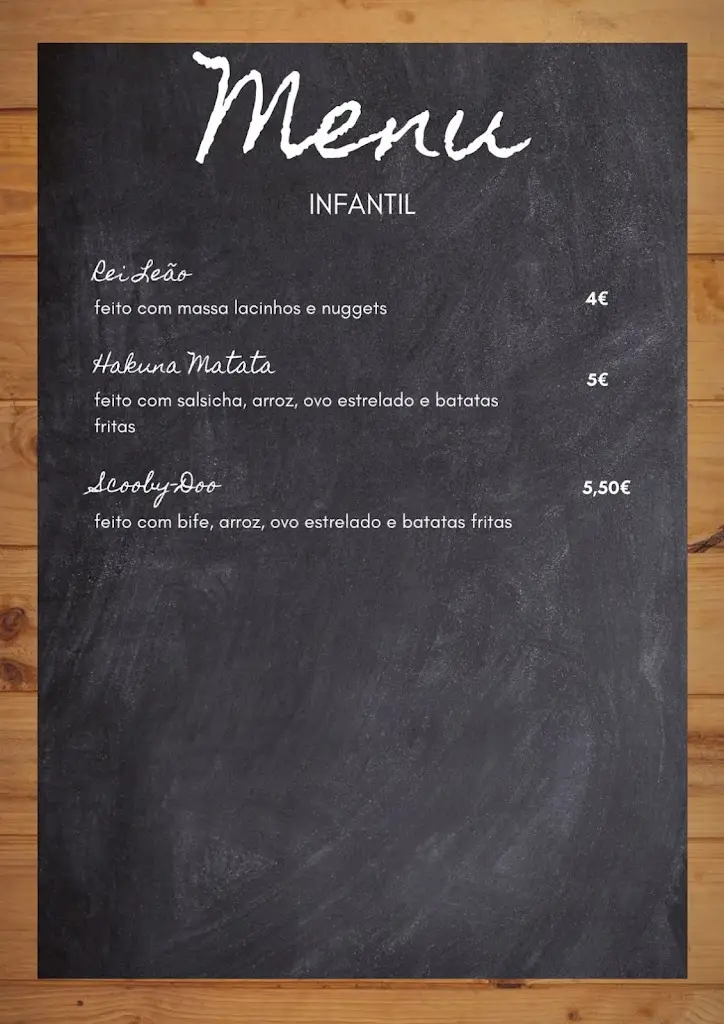 Menu
INFANTIL
Rei Leão
feito com massa lacinhos e nuggets
4€
Hakuna Matata
5€
feito com salsicha, arroz, ovo estrelado e batatas
fritas
Scooby-Doo
5,50€
feito com bife, arroz, ovo estrelado e batatas fritas